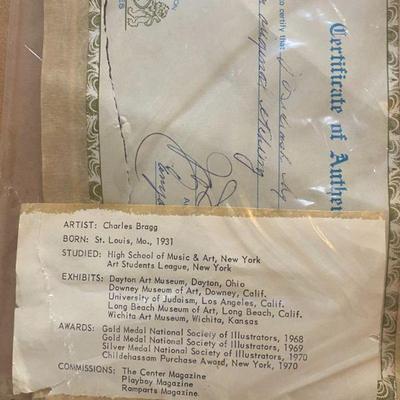 Certificate of Authen
to certify that
ARTIST: Charles Bragg
BORN: St. Louis, Mo., 1931
STUDIED: High School of Music & Art, New York
Art Students League, New York
EXHIBITS: Dayton Art Museum, Dayton, Ohio
Downey Museum of Art, Downey, Calif.
University of Judaism, Los Angeles, Calif.
Long Beach Museum of Art, Long Beach, Calif.
Wichita Art Museum, Wichita, Kansas
AWARDS: Gold Medal National Society of Illustrators, 1968
Gold Medal National Society of Illustrators, 1969
Silver Medal National Society of Illustrators, 1970
Childehassam Purchase Award, New York, 1970
COMMISSIONS: The Center Magazine
Playboy Magazine
Ramparts Magazine.